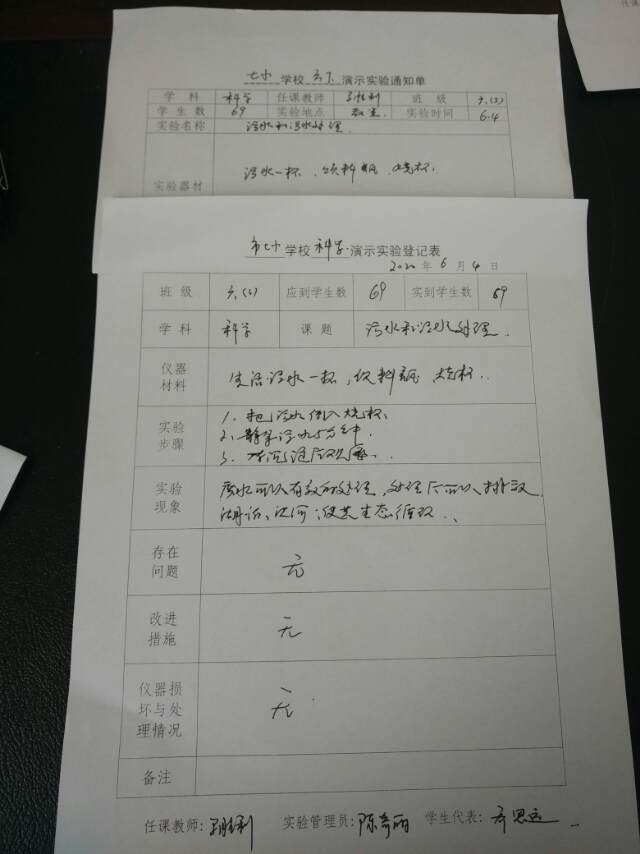 七中 学校 六下 演示实验通知单
学 科 科学 任课教师 班 级 六.(2)
学 生 数 69 实验地点 教室. 实验时间 6.4
实验名称 污水和污水处理.
实验器材 污水一杯、饮料瓶、烧杯.
市七中 学校 科学 演示实验登记表
2020 年 6 月 4 日
班 级 六.(2) 应到学生数 69 实到学生数 69
学 科 科学 课 题 污水和污水处理.
仪器
材料 生活污水一杯,饮料瓶、烧杯.
实验
步骤 1、把污水倒入烧杯;
2、静置污水5分钟.
3、
实验
现象 废水可以有效的处理,处理后可以排放
湖泊、江河;促其生态循环.
存在
问题 无
改进
措施 无
仪器损
坏与处
理情况 无
备注
任课教师: 实验管理员:陈奇丽 学生代表: